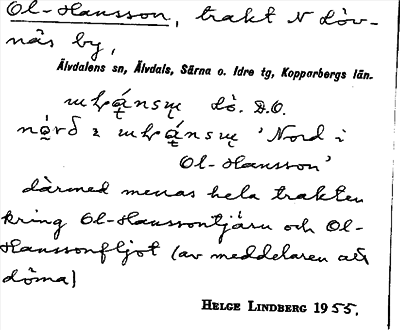 Ol-Hansson, trakt N Löv-
näs by,
Älvdalens sn, Älvdals, Särna o. Idre tg, Kopparbergs län.
Lö. D.O.
'Nord i
Ol-Hansson'
därmed menas hela trakten
kring Ol-Hanssontjärn och Ol-
Hanssonfljot (av meddelaren att
döma)
HELGE LINDBERG 1955.